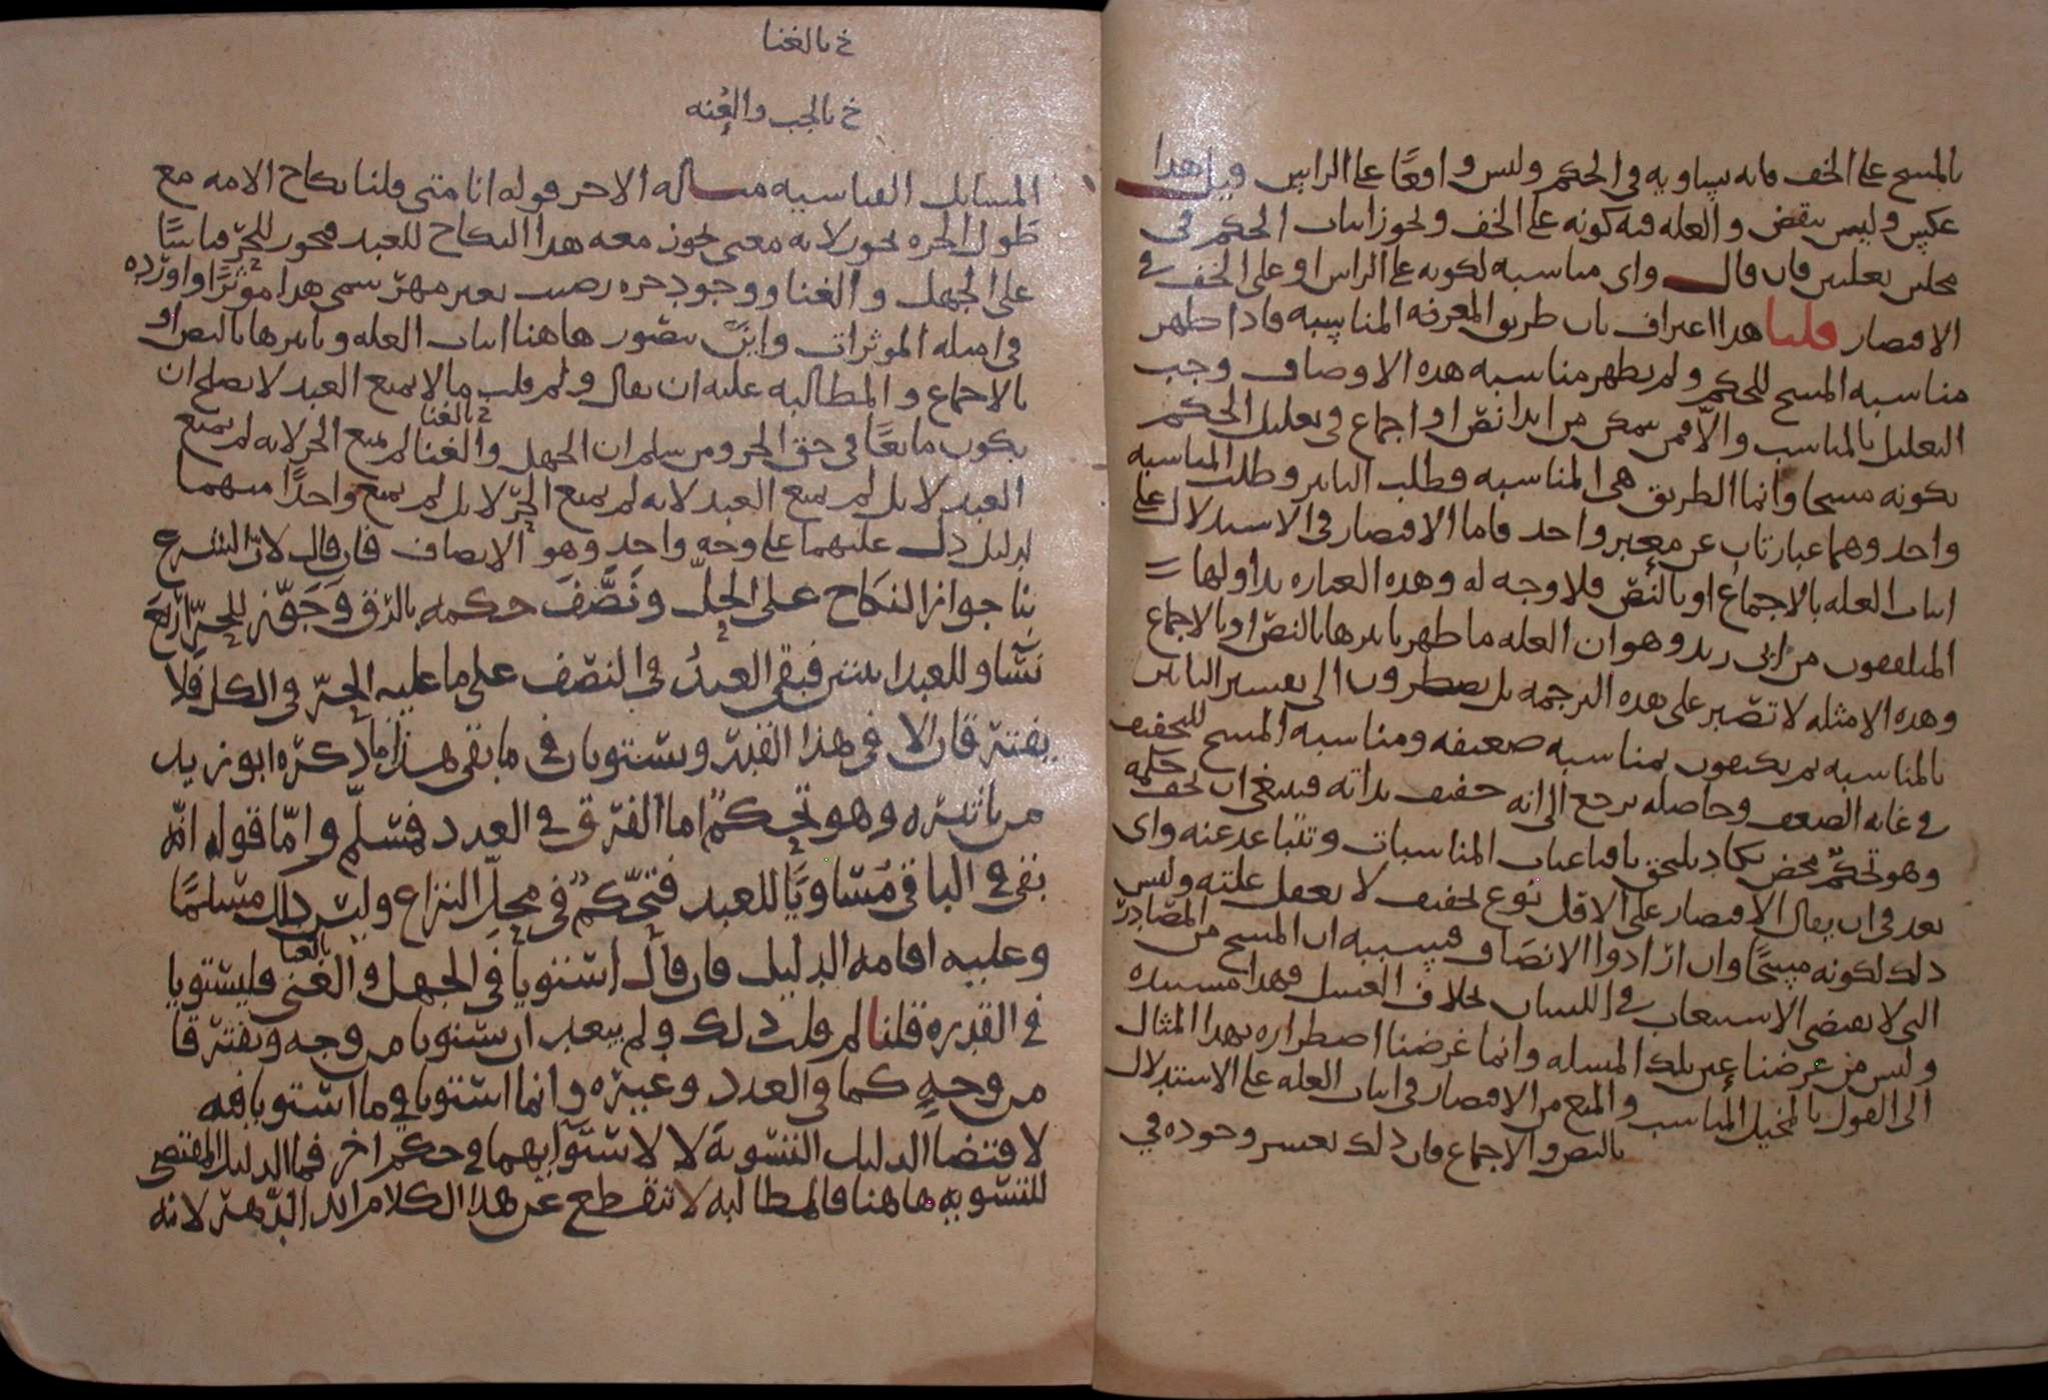 بالمسح على الخف فانه يساويه في الحكم وليس واقعًا على الراس وقيل هذا
عكس وليس بنقض والعله فيه كونه على الخف ويجوز اثبات الحكم في
محلين بعلتين فان قال واي مناسبه لكونه على الراس او على الخف في
الاقتصار قلنا هذا اعتراف بان طريق المعرفه المناسبه فاذا ظهر
مناسبه المسح للحكم ولم يظهر مناسبه هذه الاوصاف وجب
التعليل بالمناسب والّا فمن يتمكن من ابدا نص او اجماع في تعليل الحكم
بكونه مسحا وانما الطريق هي المناسبه وطلب التاثير وطلب المناسبه
واحد وهما عبارتان عن معبر واحد فاما الاقتصار في الاستدلال على
اثبات العله بالاجماع او بالنص فلا وجه له وهذه العباره تداولها
المتلقفون من ابي زيد وهو ان العله ما ظهر تاثيرها بالنص او بالاجماع
وهذه الامثله لا تصبر على هذه الترجمه بل يضطرون الى تفسير التاثير
بالمناسبه ثم يكتفون بمناسبه ضعيفه ومناسبه المسح للتخفيف
في غايه الضعف وحاصله يرجع الى انه خفيف بذاته فينبغي ان يخف حكمه
وهو تحكّم محض يكاد يلتحق باقناعيات المناسبات وتتباعد عنه واي
بعد في ان يقال الاقتصار على الاقل نوع تخفيف لا يعقل علته وليس
ذلك لكونه مسحًا وان ازادوا الانصاف فسببه ان المسح من المصادر
التي لا يقتضي الاستيعاب في اللسان بخلاف الغسل فهذا مستنده
وليس من غرضنا عين تلك المسله وانما غرضنا اضطراره بهذا المثال
الى القول بالمخيل المناسب والمنع من الاقتصار في اثبات العله على الاستدلال
بالنص والاجماع فان ذلك يعسر وجوده في
خ بالغنا
خ بالجب والعُنه
المسايل القياسيه مساله الاحر قوله انا متى قلنا نكاح الامه مع
طَول الحره يجوز لانه معنى يجوز معه هذا النكاح للعبد فيجوز للحرّ قياسًا
على الجهل والغنا ووجود حره رضيت بغير مهر سمى هذا موثرًا واورده
في امثله الموثرات واين يتصور هاهنا اثبات العله وتاثيرها بالنص او
بالاجماع والمطالبه عليه ان يقال ولم قلت ما لا يمنع العبد لا يصلح ان
خ بالغنا
يكون مانعًا في حق الحر ومن سلم ان الجهل والغنا لم يمنع الحر لانه لم يمنع
العبد لا بل لم يمنع العبد لانه لم يمنع الحرّ لا بل لم يمنع واحدًا منهما
لدليل دل عليهما على وجه واحد وهو الانصاف فان قال لانّ الشرع
بنا جواز النكاح على الحلّ ونَصَّفَ حكمه بالرق وَجَوّز للحرّ اربَع
نسّا وللعبد اثنتين فبقي العبدُ في النصف على ما عليه الحرّ في الكل فلا
يفترقان الا في هذا القدر ويستويان في ما بقي هذا ما ذكره ابو زيد
من تاثيره وهو تحكمٌ اما الفرق في العدد فمسّلم وامّا قوله انّه
بقي في الباقي مُساويًا للعبد فتحّكمٌ في محلّ النزاع وليس ذلك مسلمًا
بالغنا
وعليه اقامه الدليل فان قال استويا في الجهل والغنى فليستويا
في القدره قلنا لم قلت ذلك ولم يبعد ان يستويا من وجه ويفترقا
من وجهٍ كما في العدد وغيره وانما استويا في ما استويا فيه
لاقتضا الدليل التسّويةَ لا لاستوايهما في حكم اخر فما الدليل المقتضي
للتسّويه هاهنا فالمطالبه لا تنقطع عن هذا الكلام ابد الدهر لانه